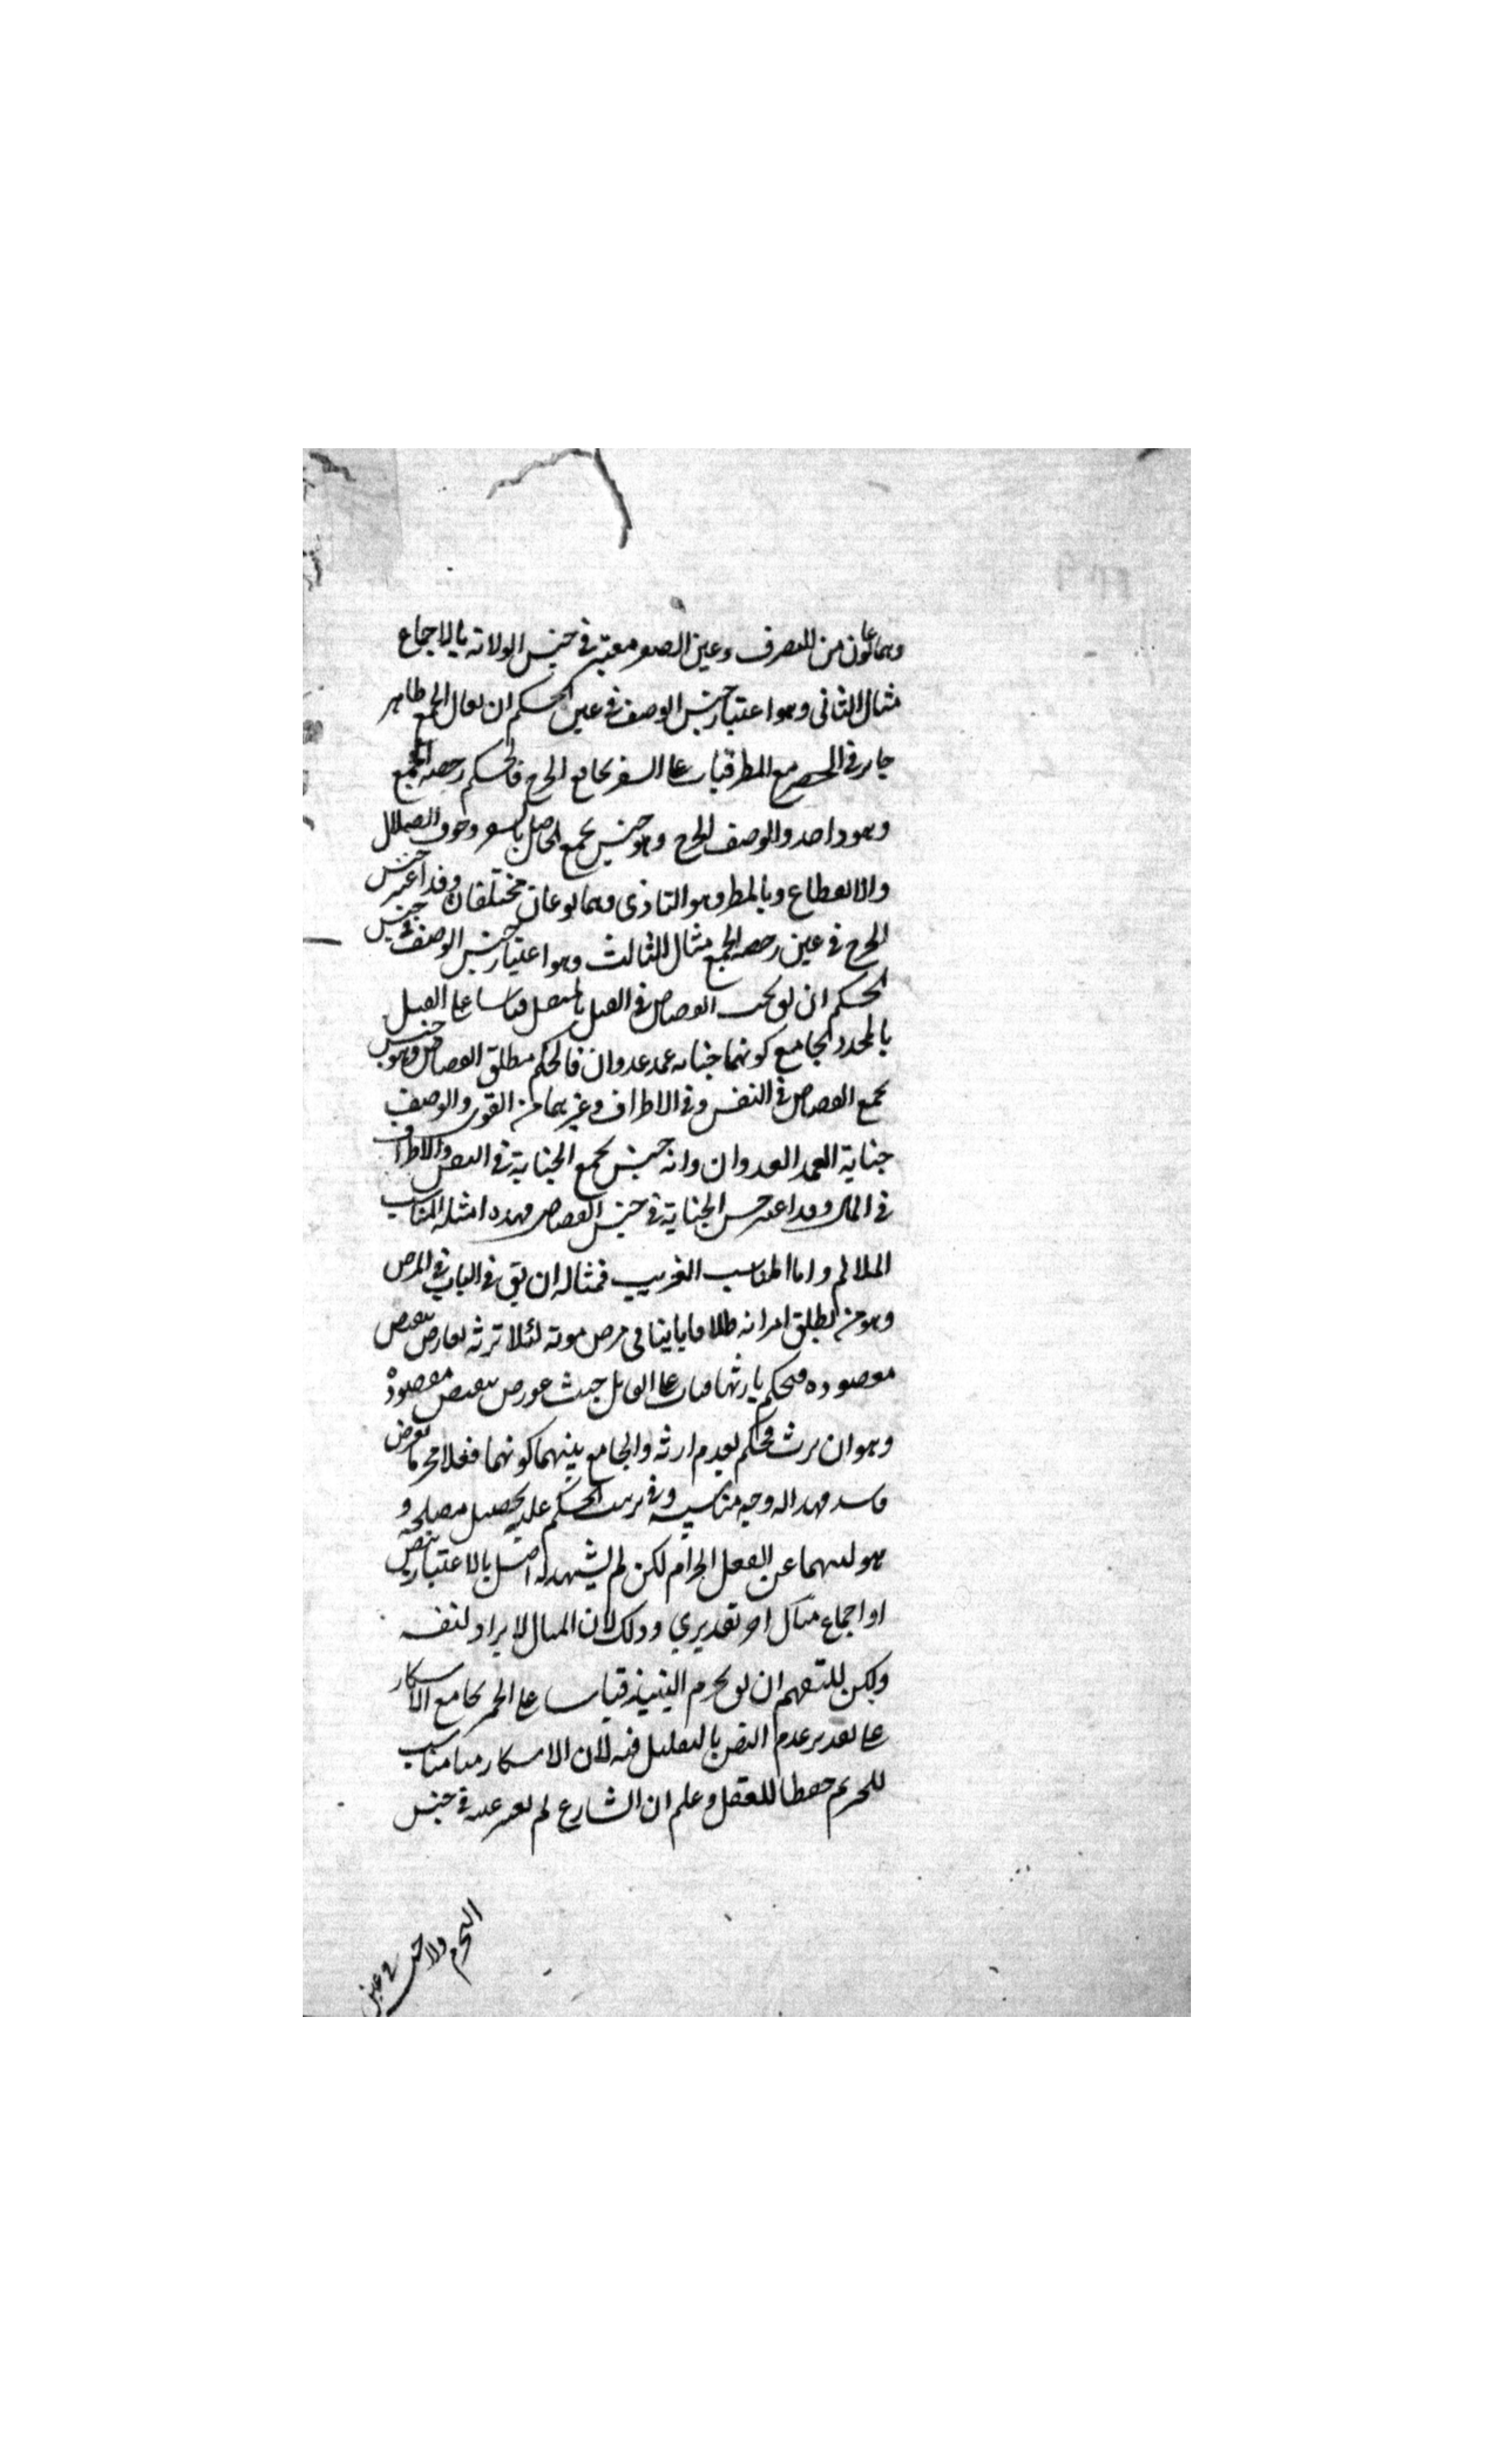 وهما نوعان من التصرف وعين الصغر معتبر في جنس الولاية بالاجماع
مثال الثاني وهو اعتبار جنس الوصف في عين الحكم ان يقال الجمع
جايز في الحضر مع المطر قياسا على السفر بجامع الحرج فالحكم رخصة الجمع
وهو واحد والوصف الحرج وهو جنس يجمع الحاصل بالسفر وهو خوف الضلال
والانقطاع وبالمطر وهو التاذي وهما نوعان مختلفان وقد اعتبر جنس
الحرج في عين رخصة الجمع مثال الثالث وهو اعتبار جنس الوصف في جنس
الحكم ان يقال يجب القصاص في القتل بالمثقل قياسا على القتل
بالمحدد لجامع كونهما جناية عمد عدوان فالحكم مطلق القصاص وهو جنس
يجمع القصاص في النفس وفي الاطراف وغيرهما من القوى والوصف
جناية العمد العدوان وانه جنس يجمع الجناية في النفس والاطراف
في المال وقد اعتبر جنس الجناية في جنس القصاص فهذه امثلة المناسب
الملائم واما المناسب الغريب فمثاله ان يق في البات في المرض
وهو من يطلق امراته طلاقا باينا في مرض موته لئلا ترثه يعارض بنقيض
مقصوده فيحكم بارثها قياسا على القاتل حيث عورض بنقيض مقصوده
وهو ان يرث فحكم بعدم ارثه والجامع بينهما كونهما فعلا محرما لغرض
فاسد فهذا له وجه مناسبة وفي ترتيب الحكم عليه تحصيل مصلحة و
هو نهيهما عن الفعل الحرام لكن لم يشهد له اصل بالاعتبار بنص
او اجماع مثال اخر تقديري وذلك لان المثال لا يراد لنفسه
ولكن للتفهم ان يق يحرم النبيذ قياسا على الخمر بجامع الاسكار
على تقدير عدم النص بالتعليل فيه لان الاسكار مناسب
للتحريم حفظا للعقل وعلم ان الشارع لم يعتبر عينه في جنس
التحريم ولا جنسه في عين